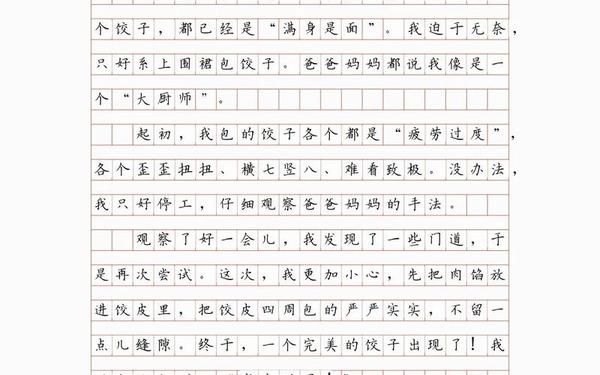 个饺子，都已经是“满身是面”。我迫于无奈，
只好系上围裙包饺子。爸爸妈妈都说我像是一
个“大厨师”。
起初，我包的饺子各个都是“疲劳过度”，
各个歪歪扭扭、横七竖八、难看致极。没办法，
我只好停工，仔细观察爸爸妈妈的手法。
观察了好一会儿，我发现了一些门道，于
是再次尝试。这次，我更加小心，先把肉馅放
进饺皮里，把饺皮四周包的严严实实，不留一
点儿缝隙。终于，一个完美的饺子出现了！我